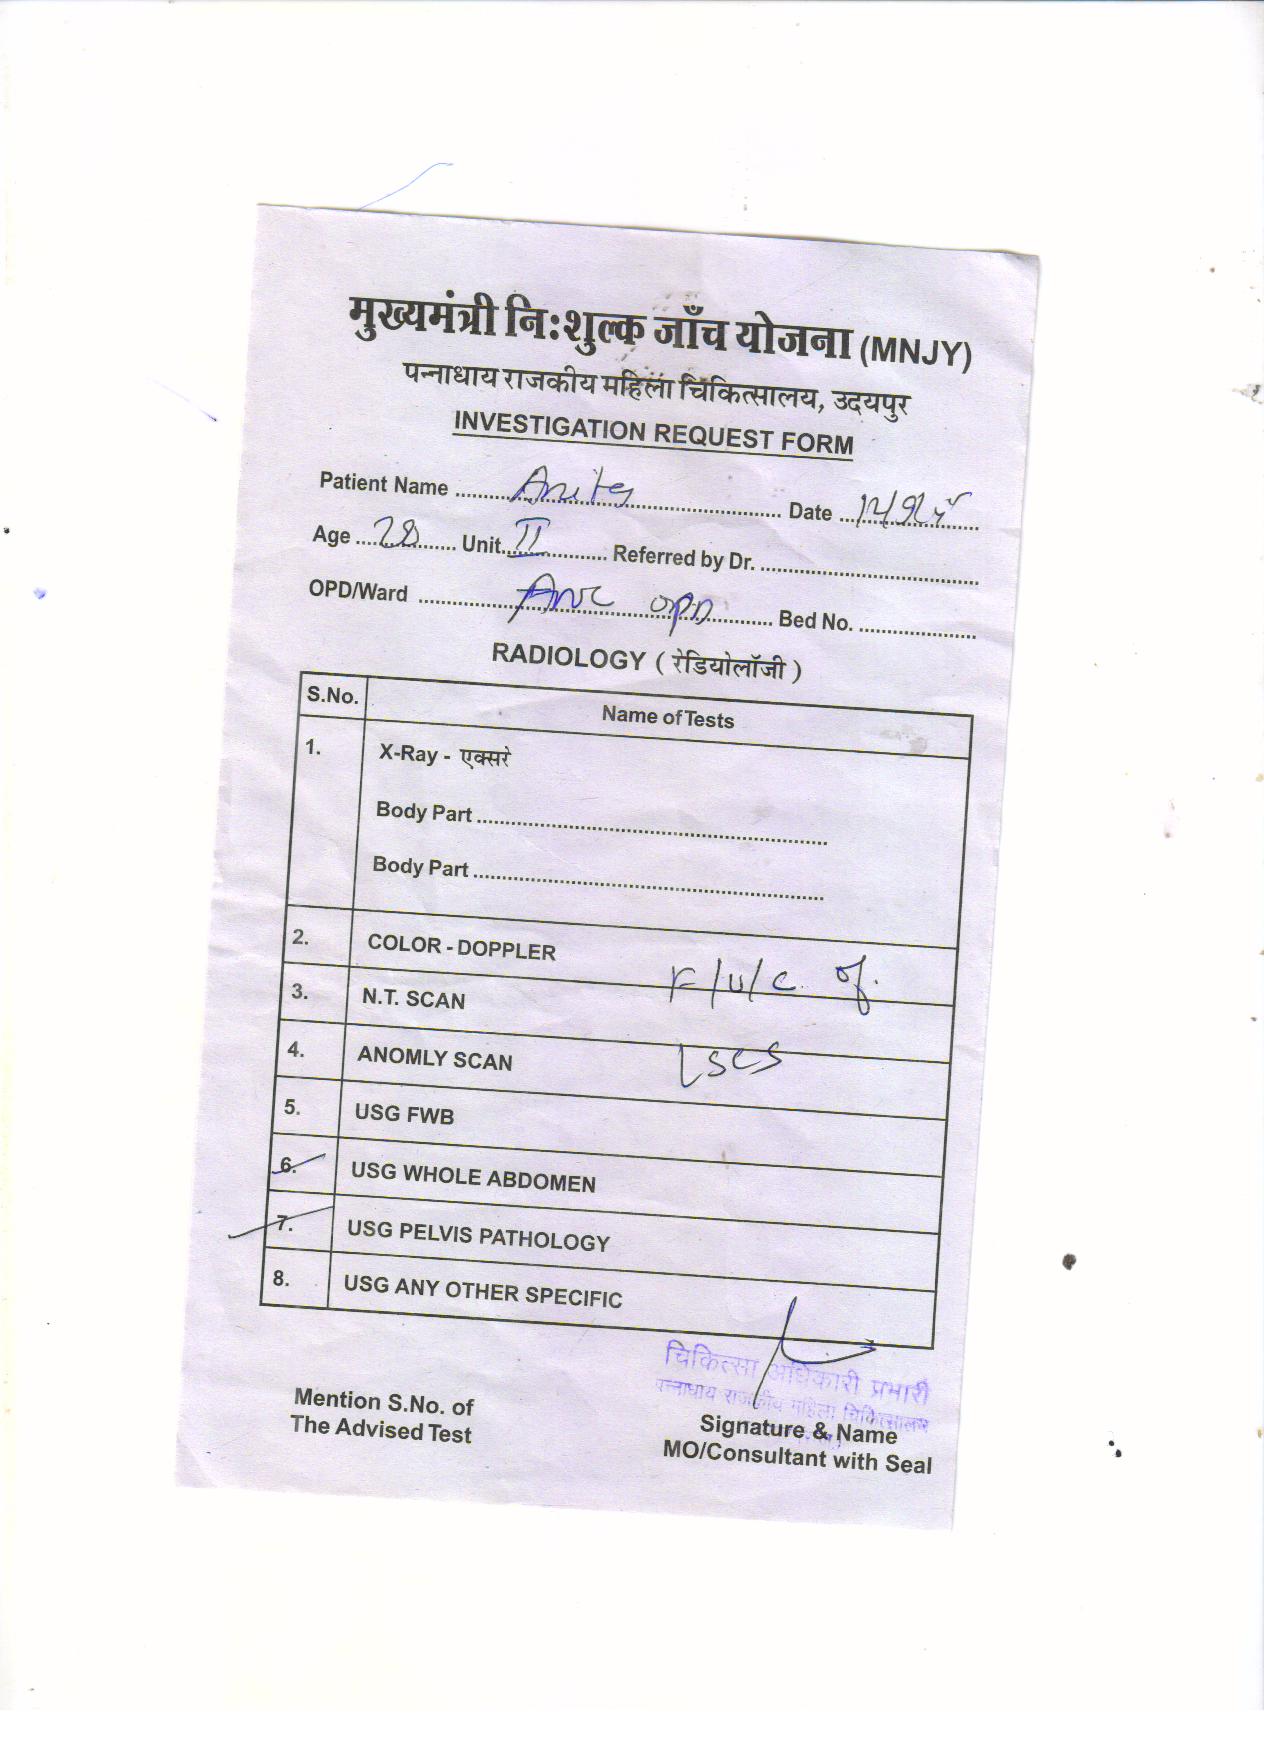 मुख्यमंत्री नि:शुल्क जाँच योजना (MNJY)
पन्नाधाय राजकीय महिला चिकित्सालय, उदयपुर
INVESTIGATION REQUEST FORM
Patient Name Anita Date
Age 28 Unit II Referred by Dr.
OPD/Ward ANC OPD Bed No.
RADIOLOGY ( रेडियोलॉजी )
S.No. Name of Tests
1. X-Ray - एक्सरे
Body Part
Body Part
2. COLOR - DOPPLER
F/U/C of
3. N.T. SCAN
4. ANOMLY SCAN LSCS
5. USG FWB
6. USG WHOLE ABDOMEN
7. USG PELVIS PATHOLOGY
8. USG ANY OTHER SPECIFIC
चिकित्सा अधिकारी प्रभारी
पन्नाधाय राजकीय महिला चिकित्सालय
Mention S.No. of
The Advised Test
Signature & Name
MO/Consultant with Seal